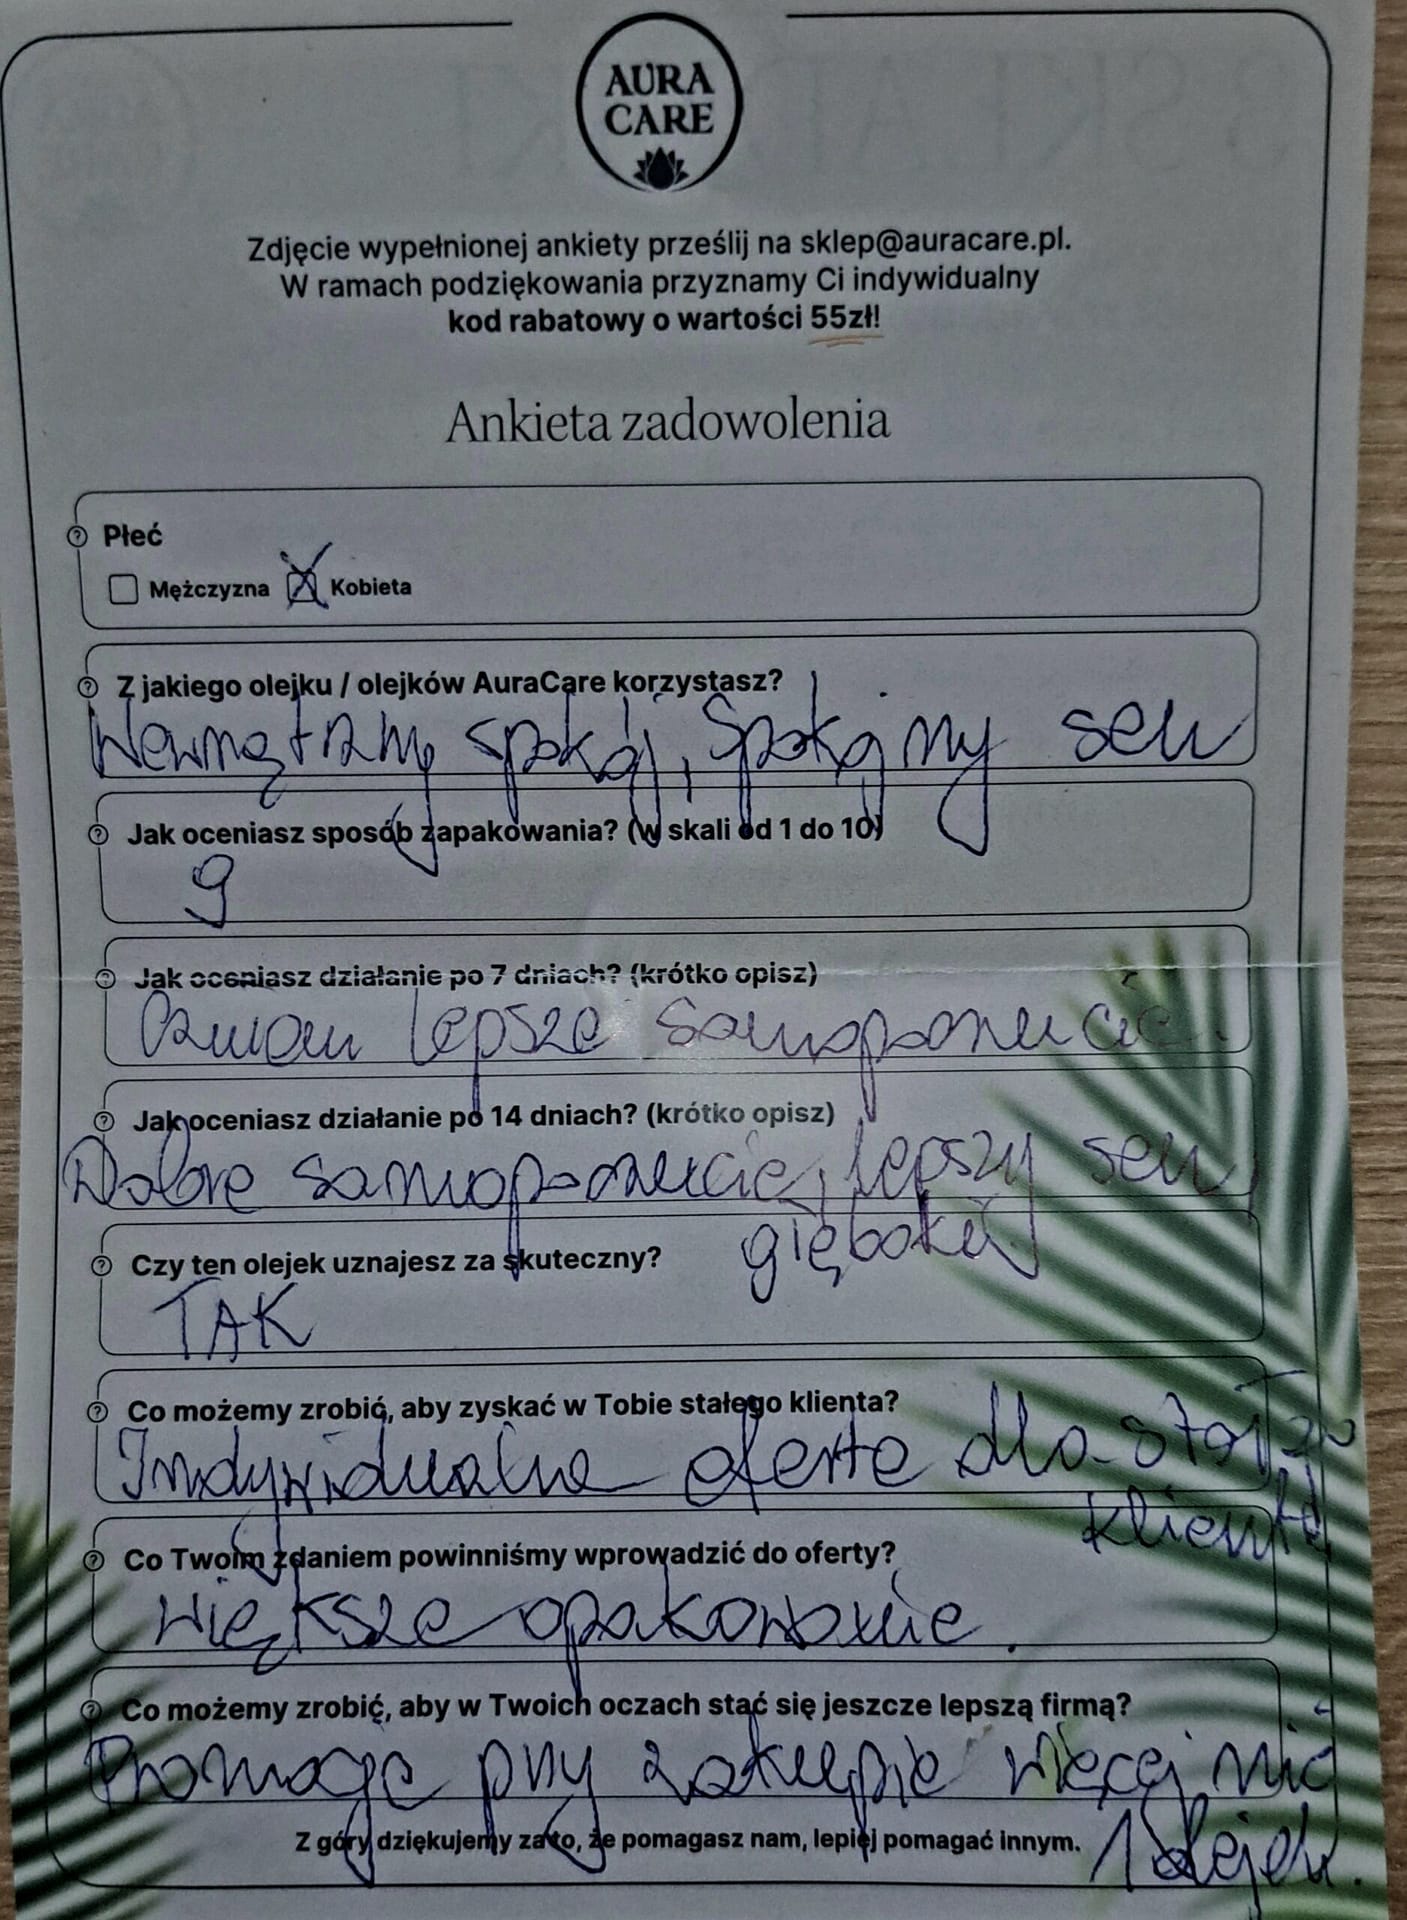 AURA
CARE
Zdjęcie wypełnionej ankiety prześlij na sklep@auracare.pl.
W ramach podziękowania przyznamy Ci indywidualny
kod rabatowy o wartości 55zł!
Ankieta zadowolenia
Płeć
Mężczyzna Kobieta
Z jakiego olejku / olejków AuraCare korzystasz?
Wewnętrzny spokój, Spokojny sen
Jak oceniasz sposób zapakowania? (w skali od 1 do 10)
9
Jak oceniasz działanie po 7 dniach? (krótko opisz)
lepsze samopoczucie.
Jak oceniasz działanie po 14 dniach? (krótko opisz)
Dobre samopoczucie, lepszy sen,
Czy ten olejek uznajesz za skuteczny?
TAK
Co możemy zrobić, aby zyskać w Tobie stałego klienta?
Indywidualne oferte dla
klienta
Co Twoim zdaniem powinniśmy wprowadzić do oferty?
większe opakowanie.
Co możemy zrobić, aby w Twoich oczach stać się jeszcze lepszą firmą?
Promocje przy zakupie więcej niż
Z góry dziękujemy za to, że pomagasz nam, lepiej pomagać innym.
1 olejek.